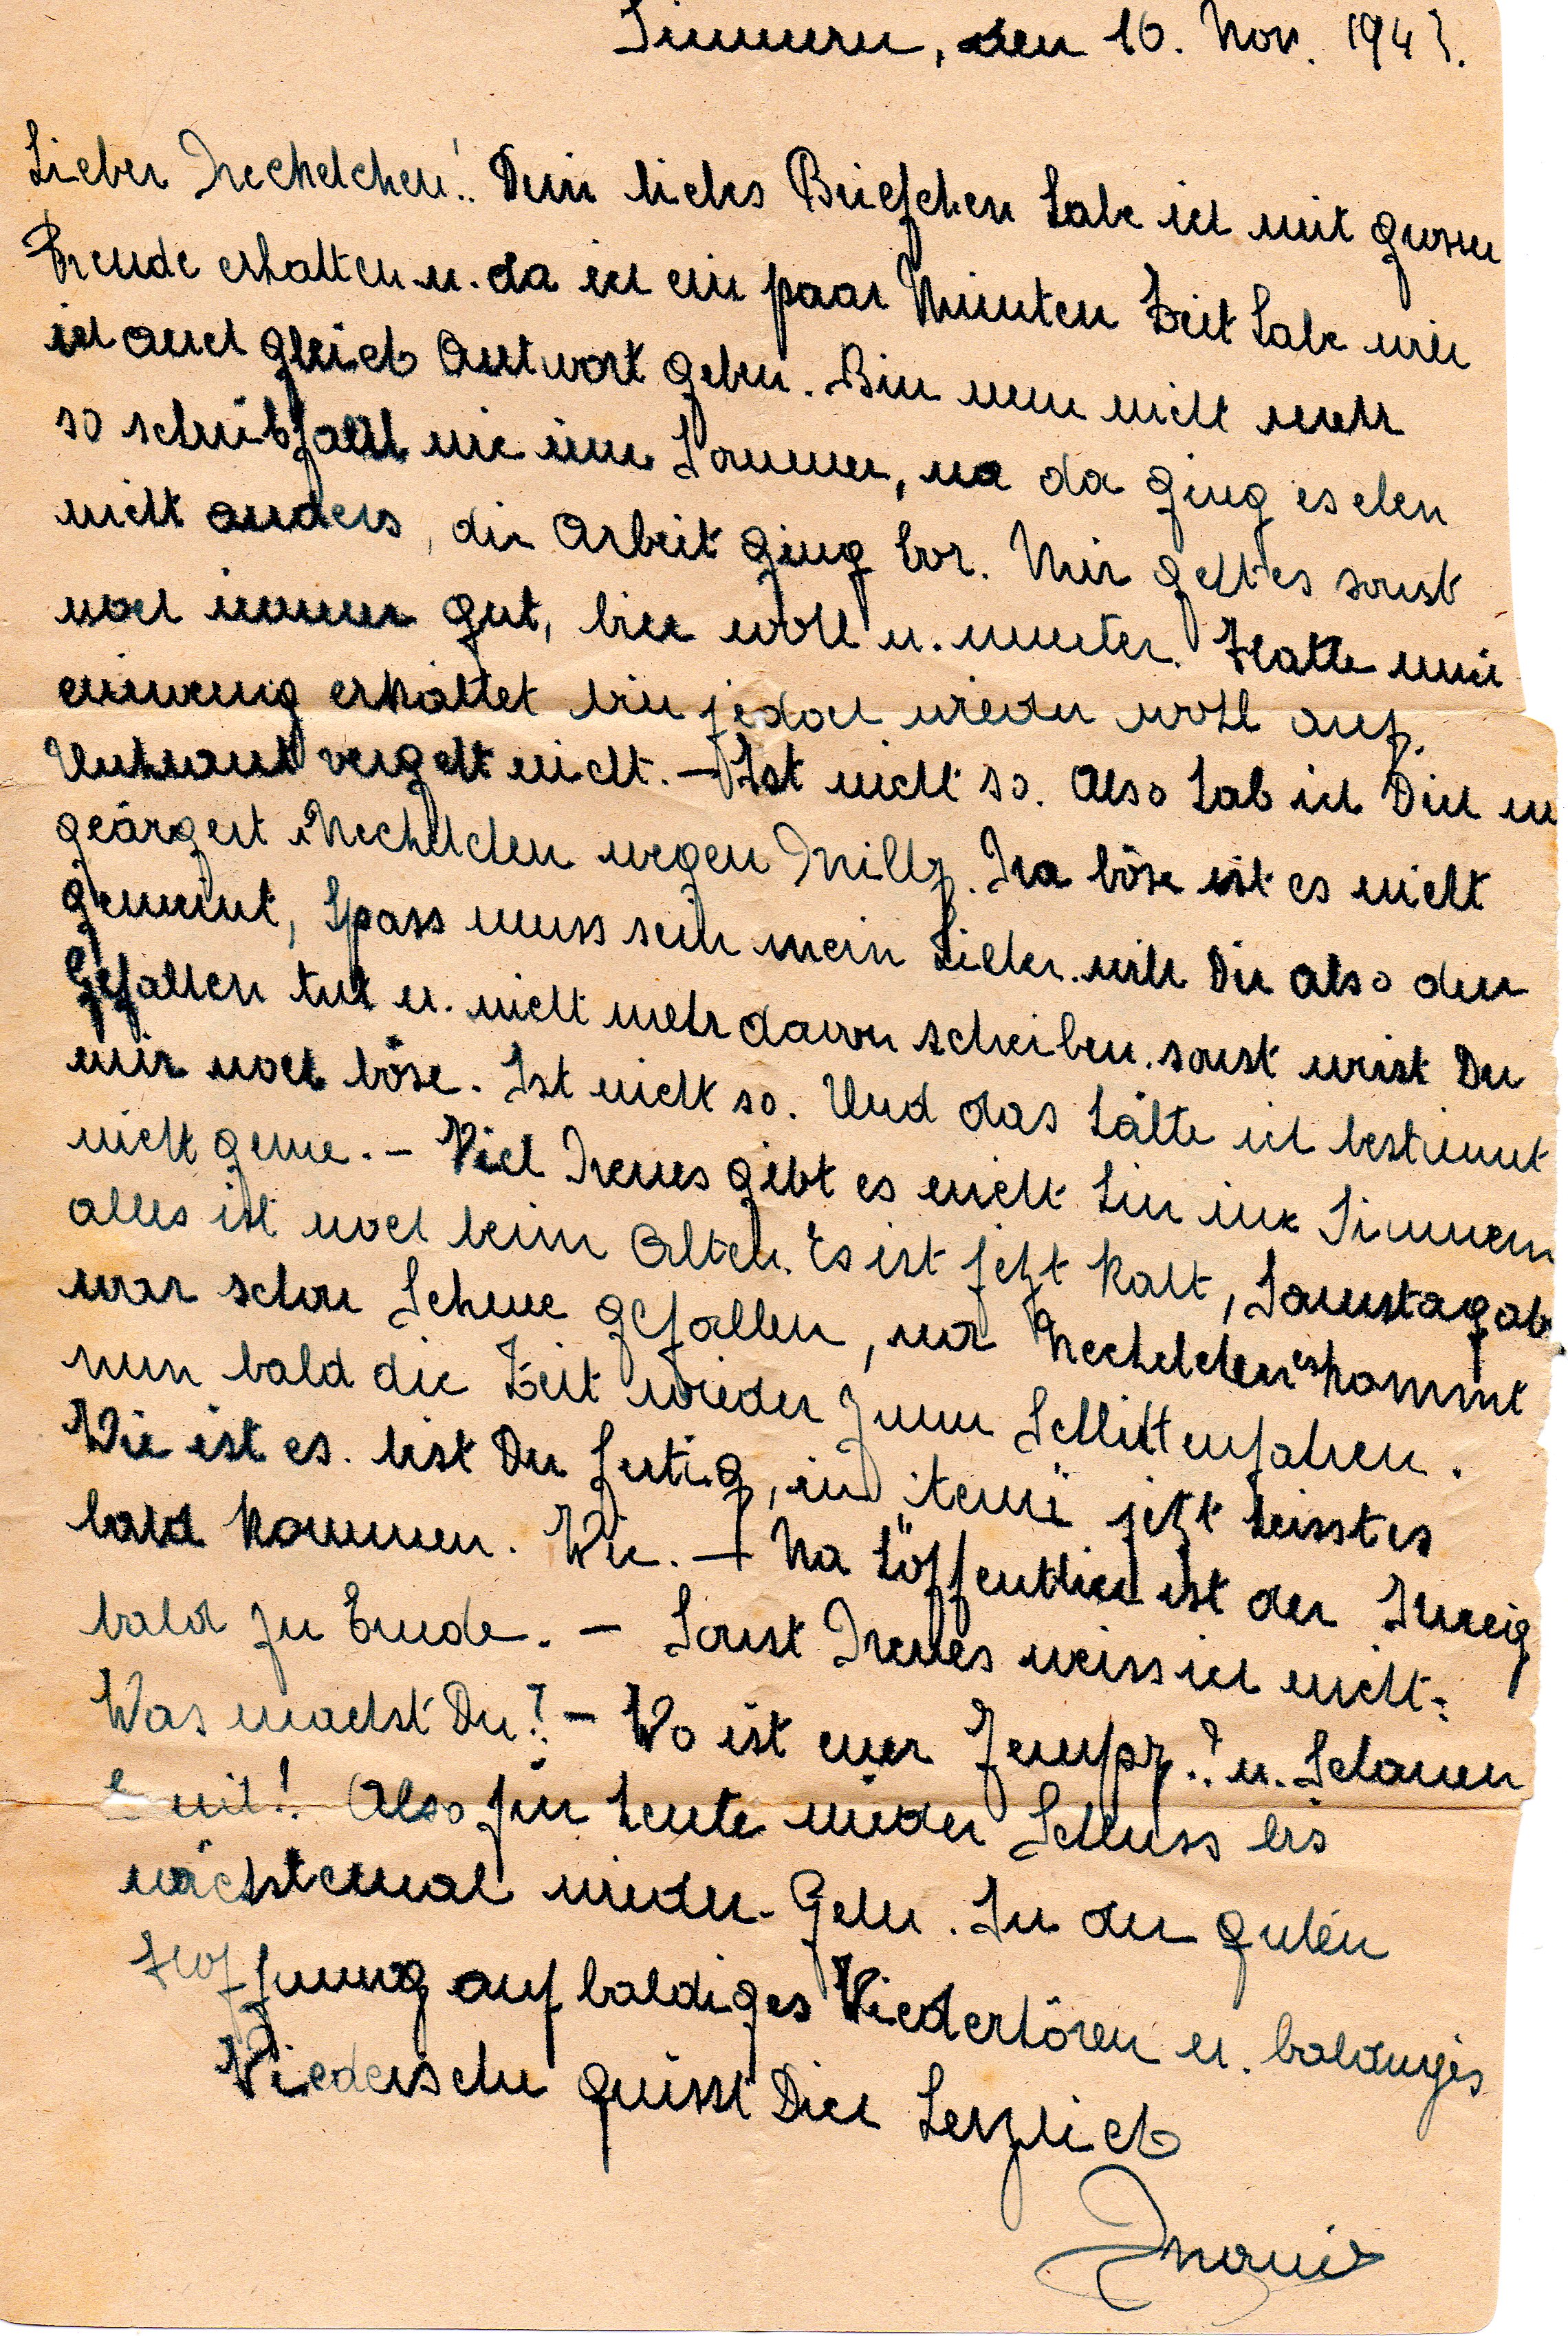 Simmern, den 16. Nov. 1943.
Lieber Mechelchen! Dein liebes Briefchen habe ich mit grosser
Freude erhalten u. da ich ein paar Minuten Zeit habe will
ich auch gleich Antwort geben. Bin nun nicht mehr
so schreibfaul wie im Sommer, na da ging es eben
nicht anders, die Arbeit ging vor. Mir geht es sonst
noch immer gut, bin wohl u. munter. Hatte mich
einwenig erkältet bin jedoch wieder wohl auf.
Unkraut vergeht nicht. – Ist nicht so. Also hab ich Dich
geärgert Mechelchen wegen Na böse ist es nicht
gemeint, Spass muss sein mein Lieber. will Dir also den
Gefallen tut u. nicht mehr davon schreiben. sonst wirst Du
mir noch böse. Ist nicht so. Und das hätte ich bestimmt
nicht gerne. – Viel Neues gibt es nicht hier in Simmern
alles ist noch beim Alten. Es ist jetzt kalt, Samstag
war schon Schnee gefallen, na Mechelchen es kommt
nun bald die Zeit wieder zum Schlittenfahren.
Wie ist es. bist Du fertig, jetzt heisst es
bald kommen. Wie. – Na höffentlich ist der
bald zu Ende. – Sonst Neues weiss ich nicht.
Was machst Du? – Wo ist euer u.
Also für heute wieder Schluss bis
nächstemal wieder. Gelle. In der guten
Hoffnung auf baldiges Wiederhören u. baldiges
Wiedersehen grüsst Dich herzlich